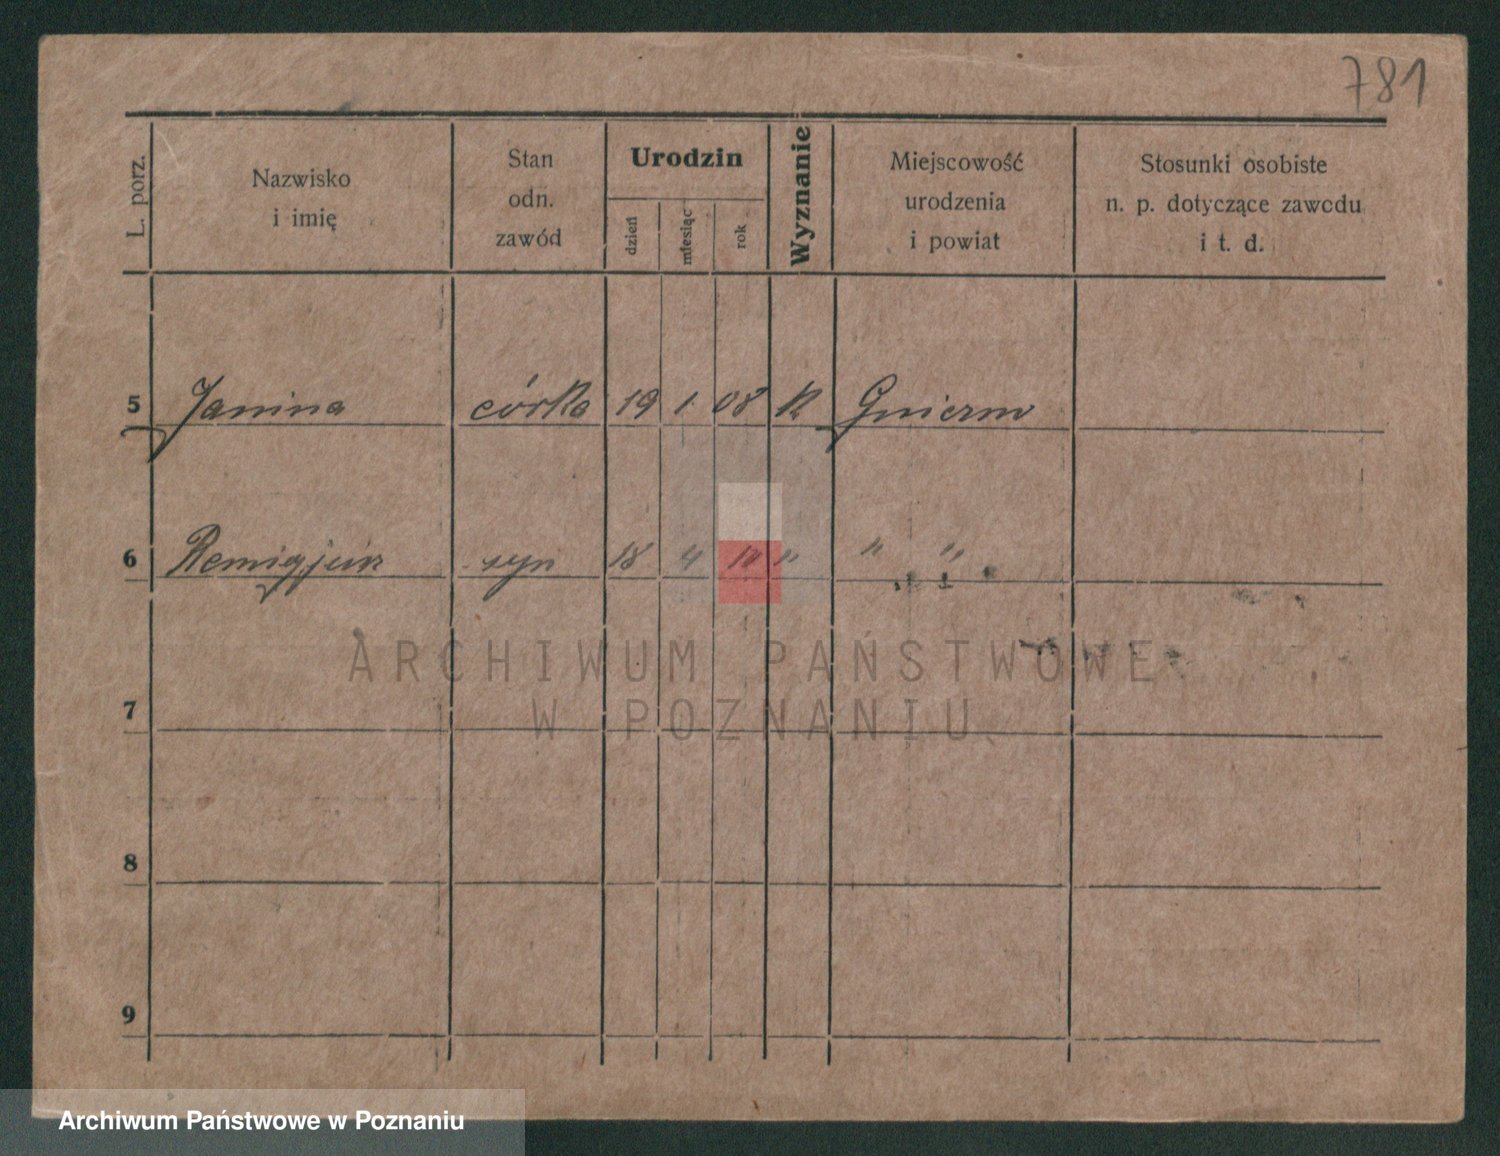 781
L. porz.
Nazwisko
i imię
Stan
odn.
zawód
Urodzin
dzień
miesiąc
rok
Wyznanie
Miejscowość
urodzenia
i powiat
Stosunki osobiste
n. p. dotyczące zawodu
i t. d.
5 Janina córka 19 1 08 k
6 Remigjusz syn 18 4 " " "
ARCHIWUM PAŃSTWOWE
W POZNANIU
7
8
9
Archiwum Państwowe w Poznaniu